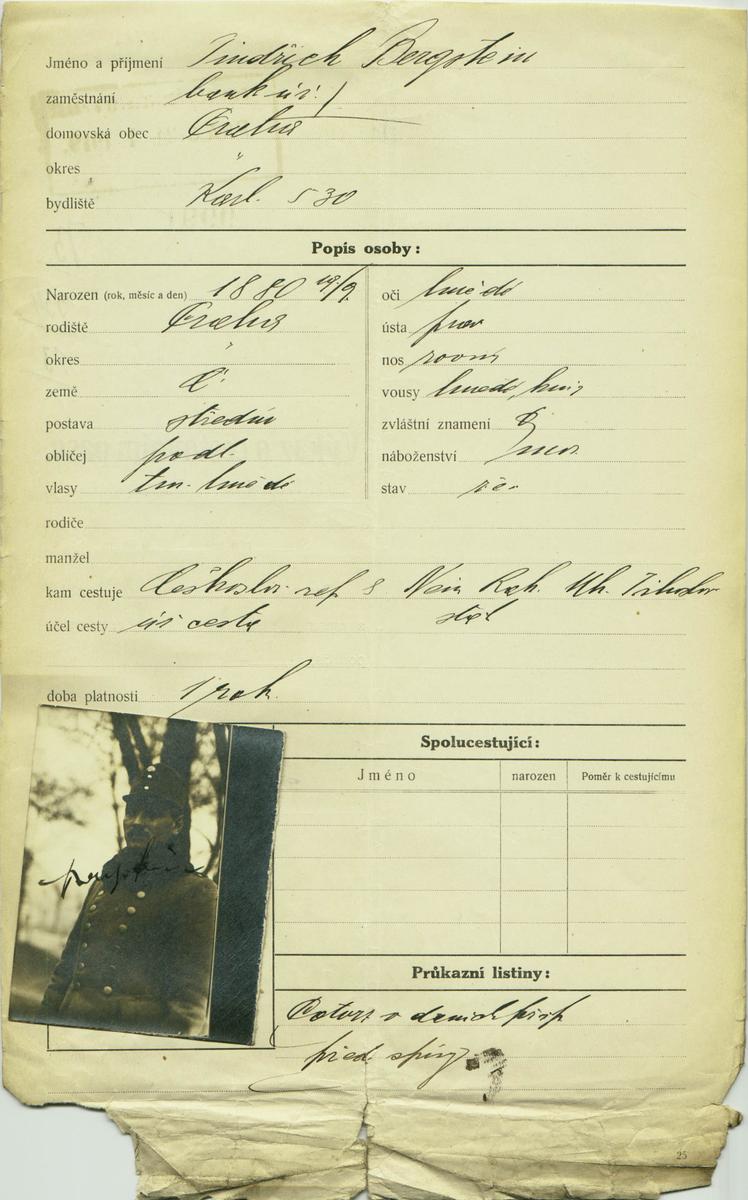 Jméno a příjmení Jindřich Bergstein
zaměstnání bank. úř.
domovská obec Praha
okres "
bydliště Karl. 530
Popis osoby:
Narozen (rok, měsíc a den) 1880 19/9
rodiště Praha
okres "
země Č
postava střední
obličej podl.
vlasy tm. hnědé
oči hnědé
ústa prav
nos rovný
vousy hnědé, knír
zvláštní znamení
náboženství
stav
rodiče
manžel
kam cestuje Českoslov. rep. Něm. Rak. Uh. Jihoslov
stát
účel cesty cesta
doba platnosti 1 rok.
Spolucestující:
Jméno narozen Poměr k cestujícímu
Průkazní listiny:
Potvrz o daních přísp
před. spisy
25